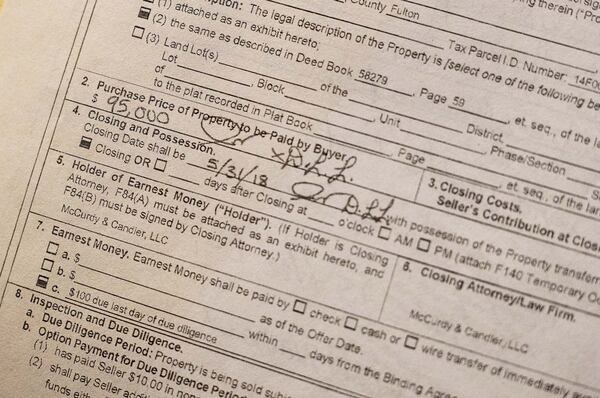 County Fulton
Tax Parcel I.D. Number: 14F00
ption: The legal description of the Property is [select one of the following be
(1) attached as an exhibit hereto;
(2) the same as described in Deed Book 58279, Page 59, et. seq., of the la
(3) Land Lot(s) of the
Lot, Block, Unit, District, Phase/Section
of
to the plat recorded in Plat Book, Page, et. seq., of the
2. Purchase Price of Property to be Paid by Buyer.
$ 95,000
3. Closing Costs.
Seller's Contribution at Closi
4. Closing and Possession.
Closing Date shall be 5/31/18 with possession of the Property transferr
Closing OR days after Closing at o'clock AM PM (attach F140 Temporary Oc
5. Holder of Earnest Money ("Holder"). (If Holder is Closing
Attorney, F84(A) must be attached as an exhibit hereto, and
F84(B) must be signed by Closing Attorney.)
McCurdy & Candler, LLC
6. Closing Attorney/Law Firm.
McCurdy & Candler, LLC
7. Earnest Money. Earnest Money shall be paid by check cash or wire transfer of immediately
a. $
b. $ as of the Offer Date.
c. $100 due last day of due diligence within days from the Binding Agree
8. Inspection and Due Diligence.
a. Due Diligence Period: Property is being sold subj
b. Option Payment for Due Diligence Period
(1) has paid Seller $10.00 in non
(2) shall pay Seller addition
funds either